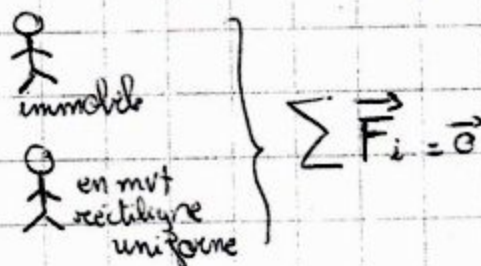 immobile
en mvt
rectiligne
uniforme
∑ F⃗ᵢ = 0⃗